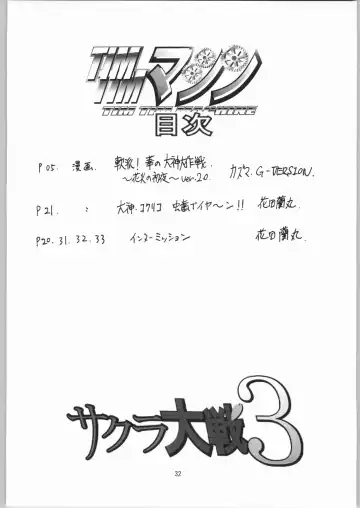 TIM TIMマシン
TIM TIM MACHINE
目次
P05. 漫画. 軟派! 華の大神大作戦.
～花火の初夜～ ver.2.0 カズマ.G-VERSION.
P21. : 大神.コクリコ 虫歯でイヤ～ン!! 花田蘭丸
P20.31.32.33 インターミッション 花田蘭丸
サクラ大戦3
32